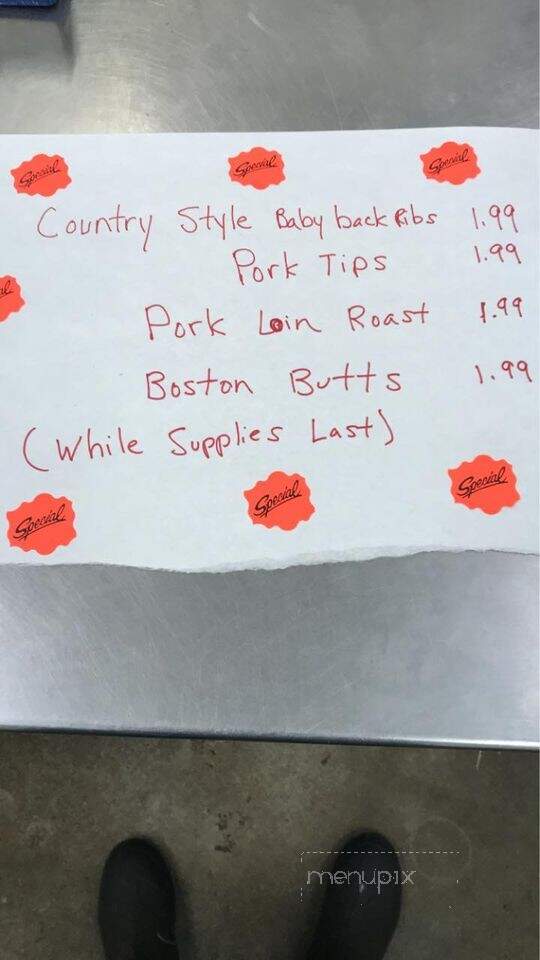 Special Special Special
Country Style Baby back Ribs 1.99
Pork Tips 1.99
al
Pork Loin Roast 1.99
Boston Butts 1.99
(While Supplies Last)
Special Special Special
menupix